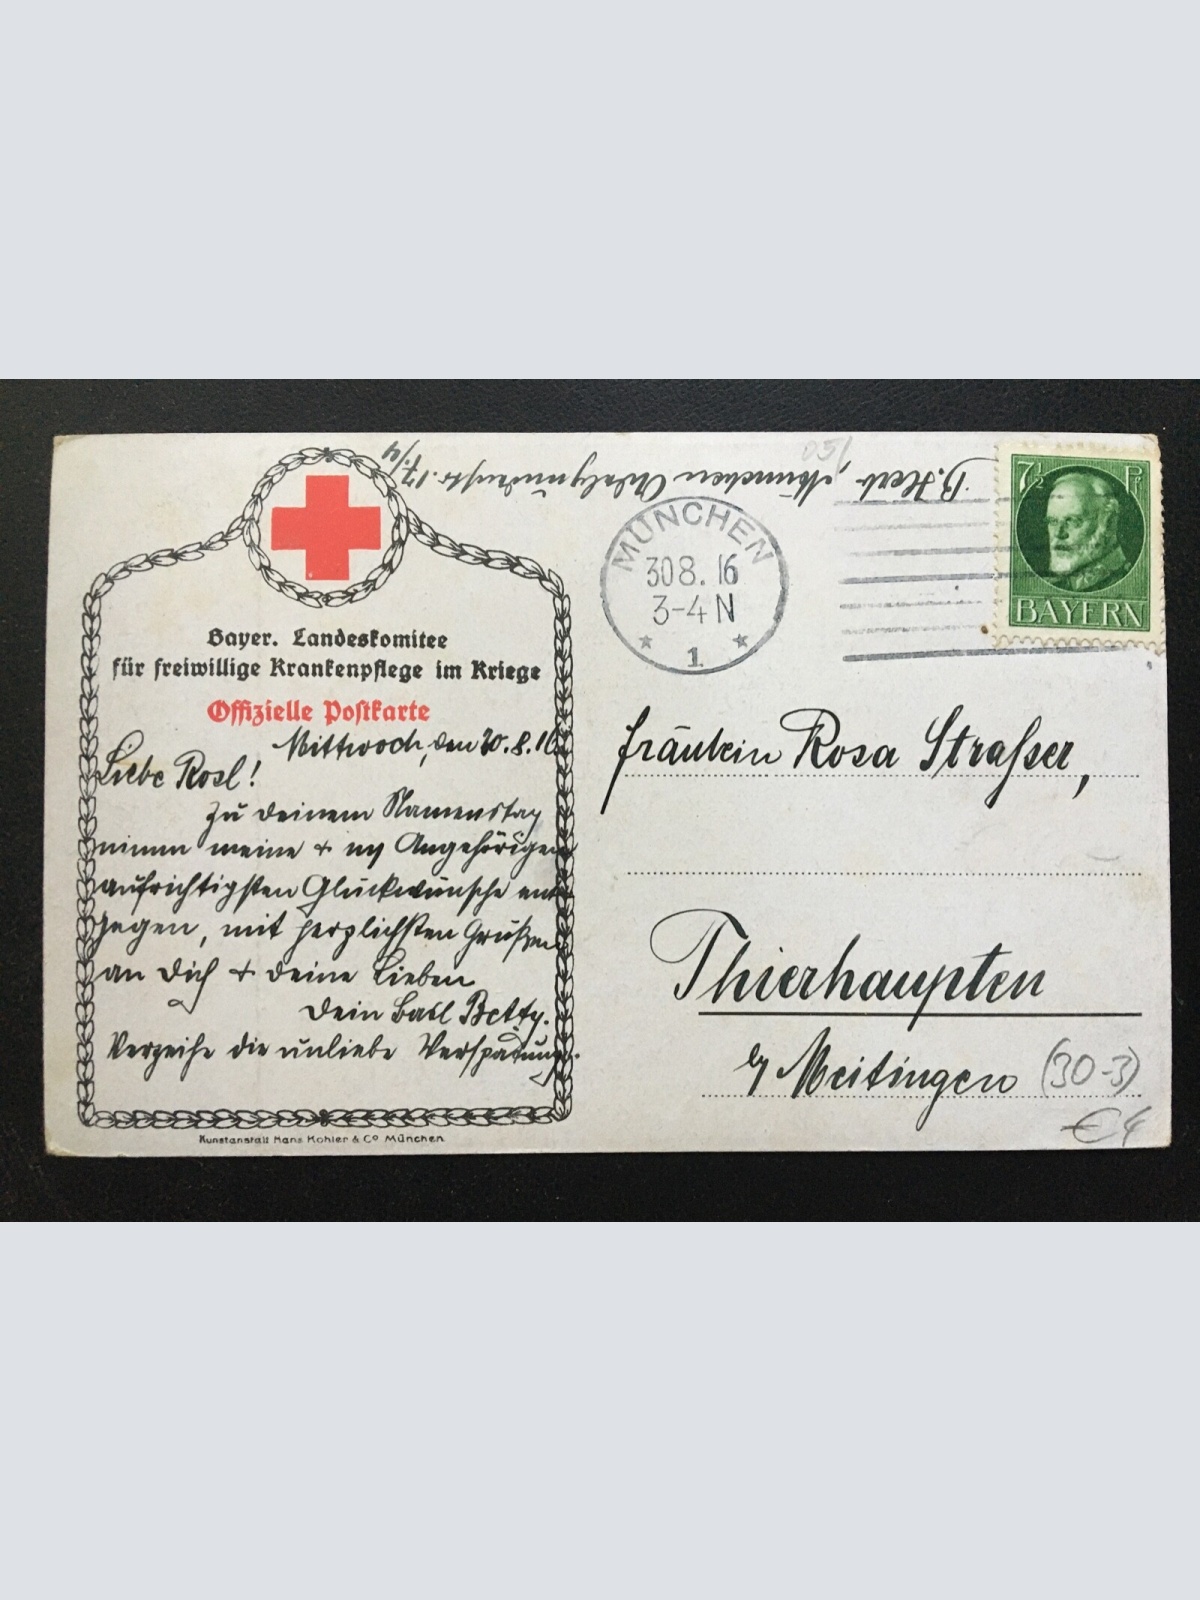 Bayer. Landeskomitee
für freiwillige Krankenpflege im Kriege
Offizielle Postkarte
Mittwoch, den 30.8.16
Liebe Rosl!
Zu deinem Namenstag
nimm meine + Angehörigen
aufrichtigsten Glückwünsche ent
gegen, mit herzlichsten Grüßen
an dich + deine Lieben
Dein Betty.
Verzeihe die unliebe Verspätung.
Kunstanstalt Hans Kohler & Co München
B. Herb, München 17./4
051
MÜNCHEN
30 8. 16
3-4 N
1
7½ Pf
BAYERN
Fräulein Rosa Strasser,
Thierhaupten
b/ Meitingen
(30-3)
€4